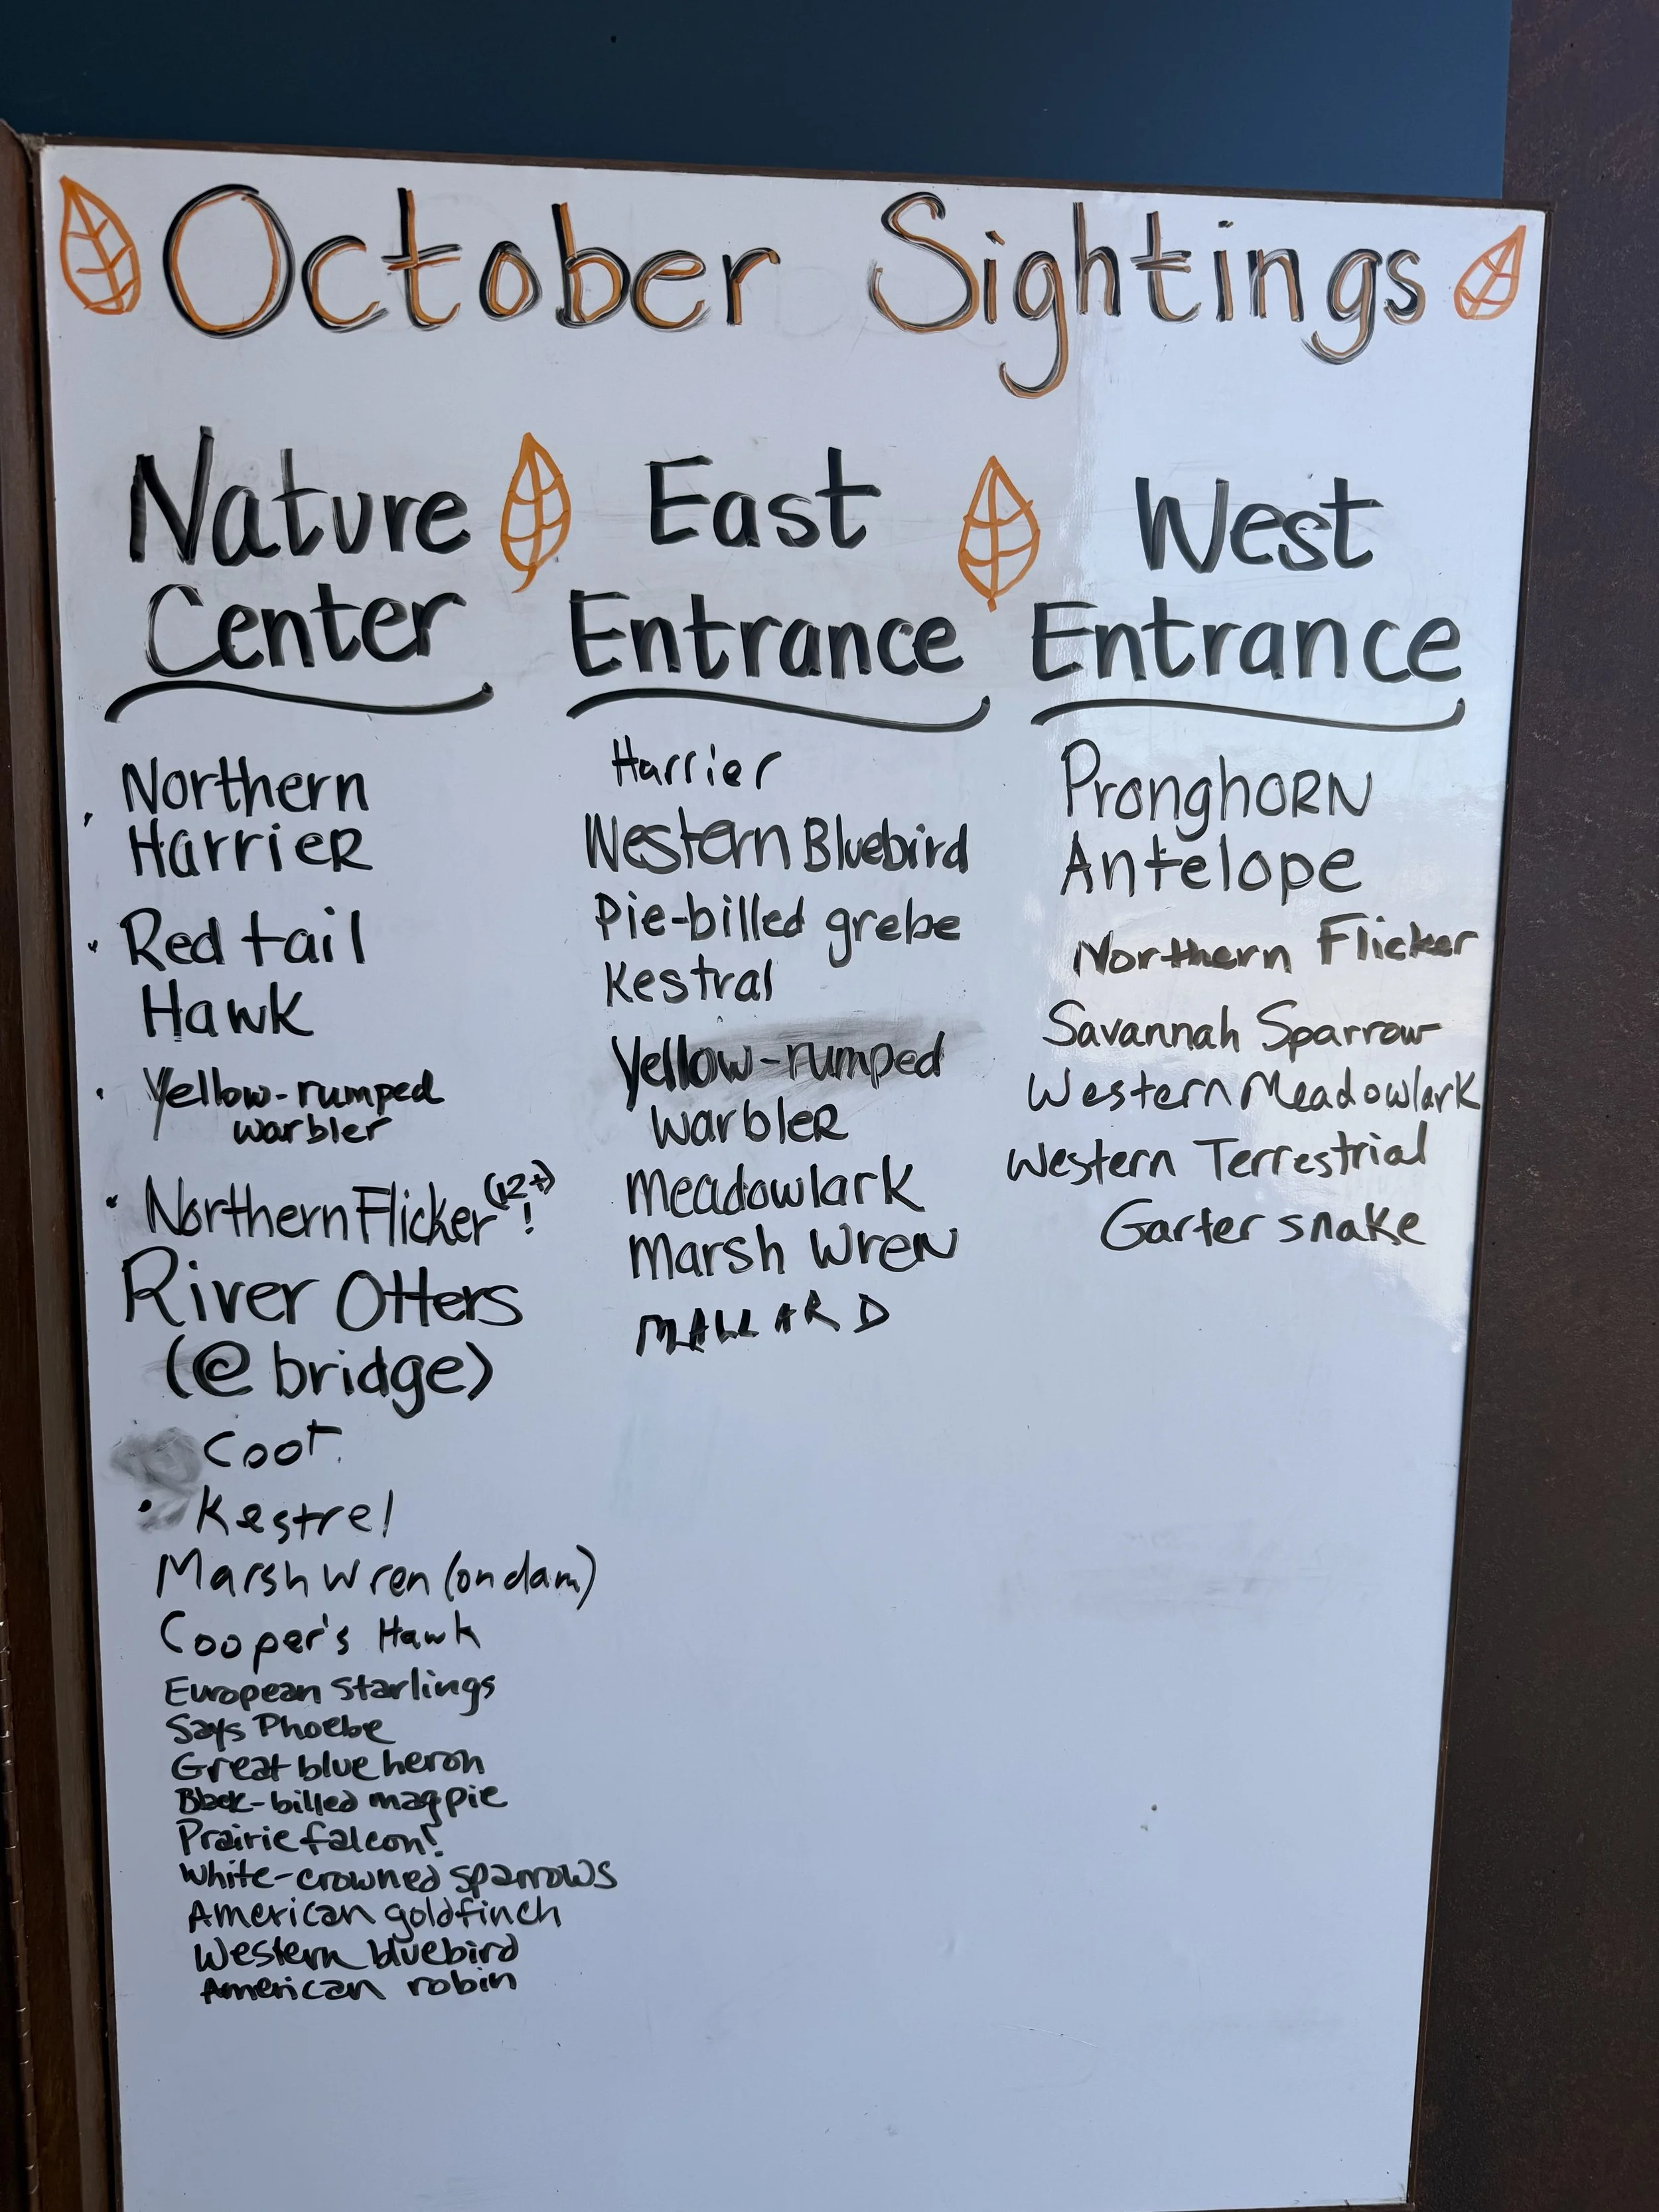 October Sightings
Nature
Center
Northern
Harrier
Red tail
Hawk
Yellow-rumped
warbler
Northern Flicker (12+)!
River Otters
(@ bridge)
Coot
Kestrel
Marsh Wren (on dam)
Cooper's Hawk
European Starlings
Says Phoebe
Great blue heron
Black-billed magpie
Prairie falcon!
White-crowned sparrows
American goldfinch
Western bluebird
American robin
East
Entrance
Harrier
Western Bluebird
Pie-billed grebe
Kestral
Yellow-rumped
warbler
Meadowlark
Marsh Wren
MALLARD
West
Entrance
Pronghorn
Antelope
Northern Flicker
Savannah Sparrow
Western Meadowlark
Western Terrestrial
Garter snake